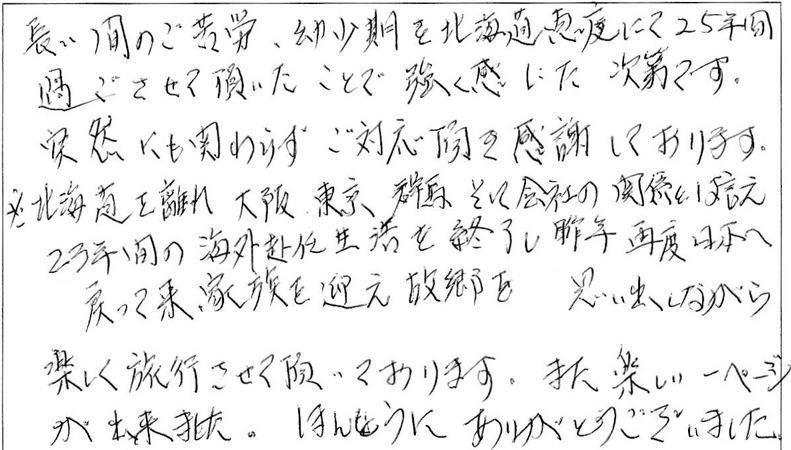 長い間のご苦労、幼少期を北海道恵庭にて25年間
過ごさせて頂いたことで強く感じた次第です。
突然にも関わらずご対応頂き感謝しております。
※北海道を離れ大阪、東京、群馬そして会社の関係とは言え
23年間の海外赴任生活を終了し昨年再度日本へ
戻って来、家族を迎え故郷を 思い出しながら
楽しく旅行させて頂いております。また楽しい一ページ
が出来ました。ほんとうにありがとうございました。